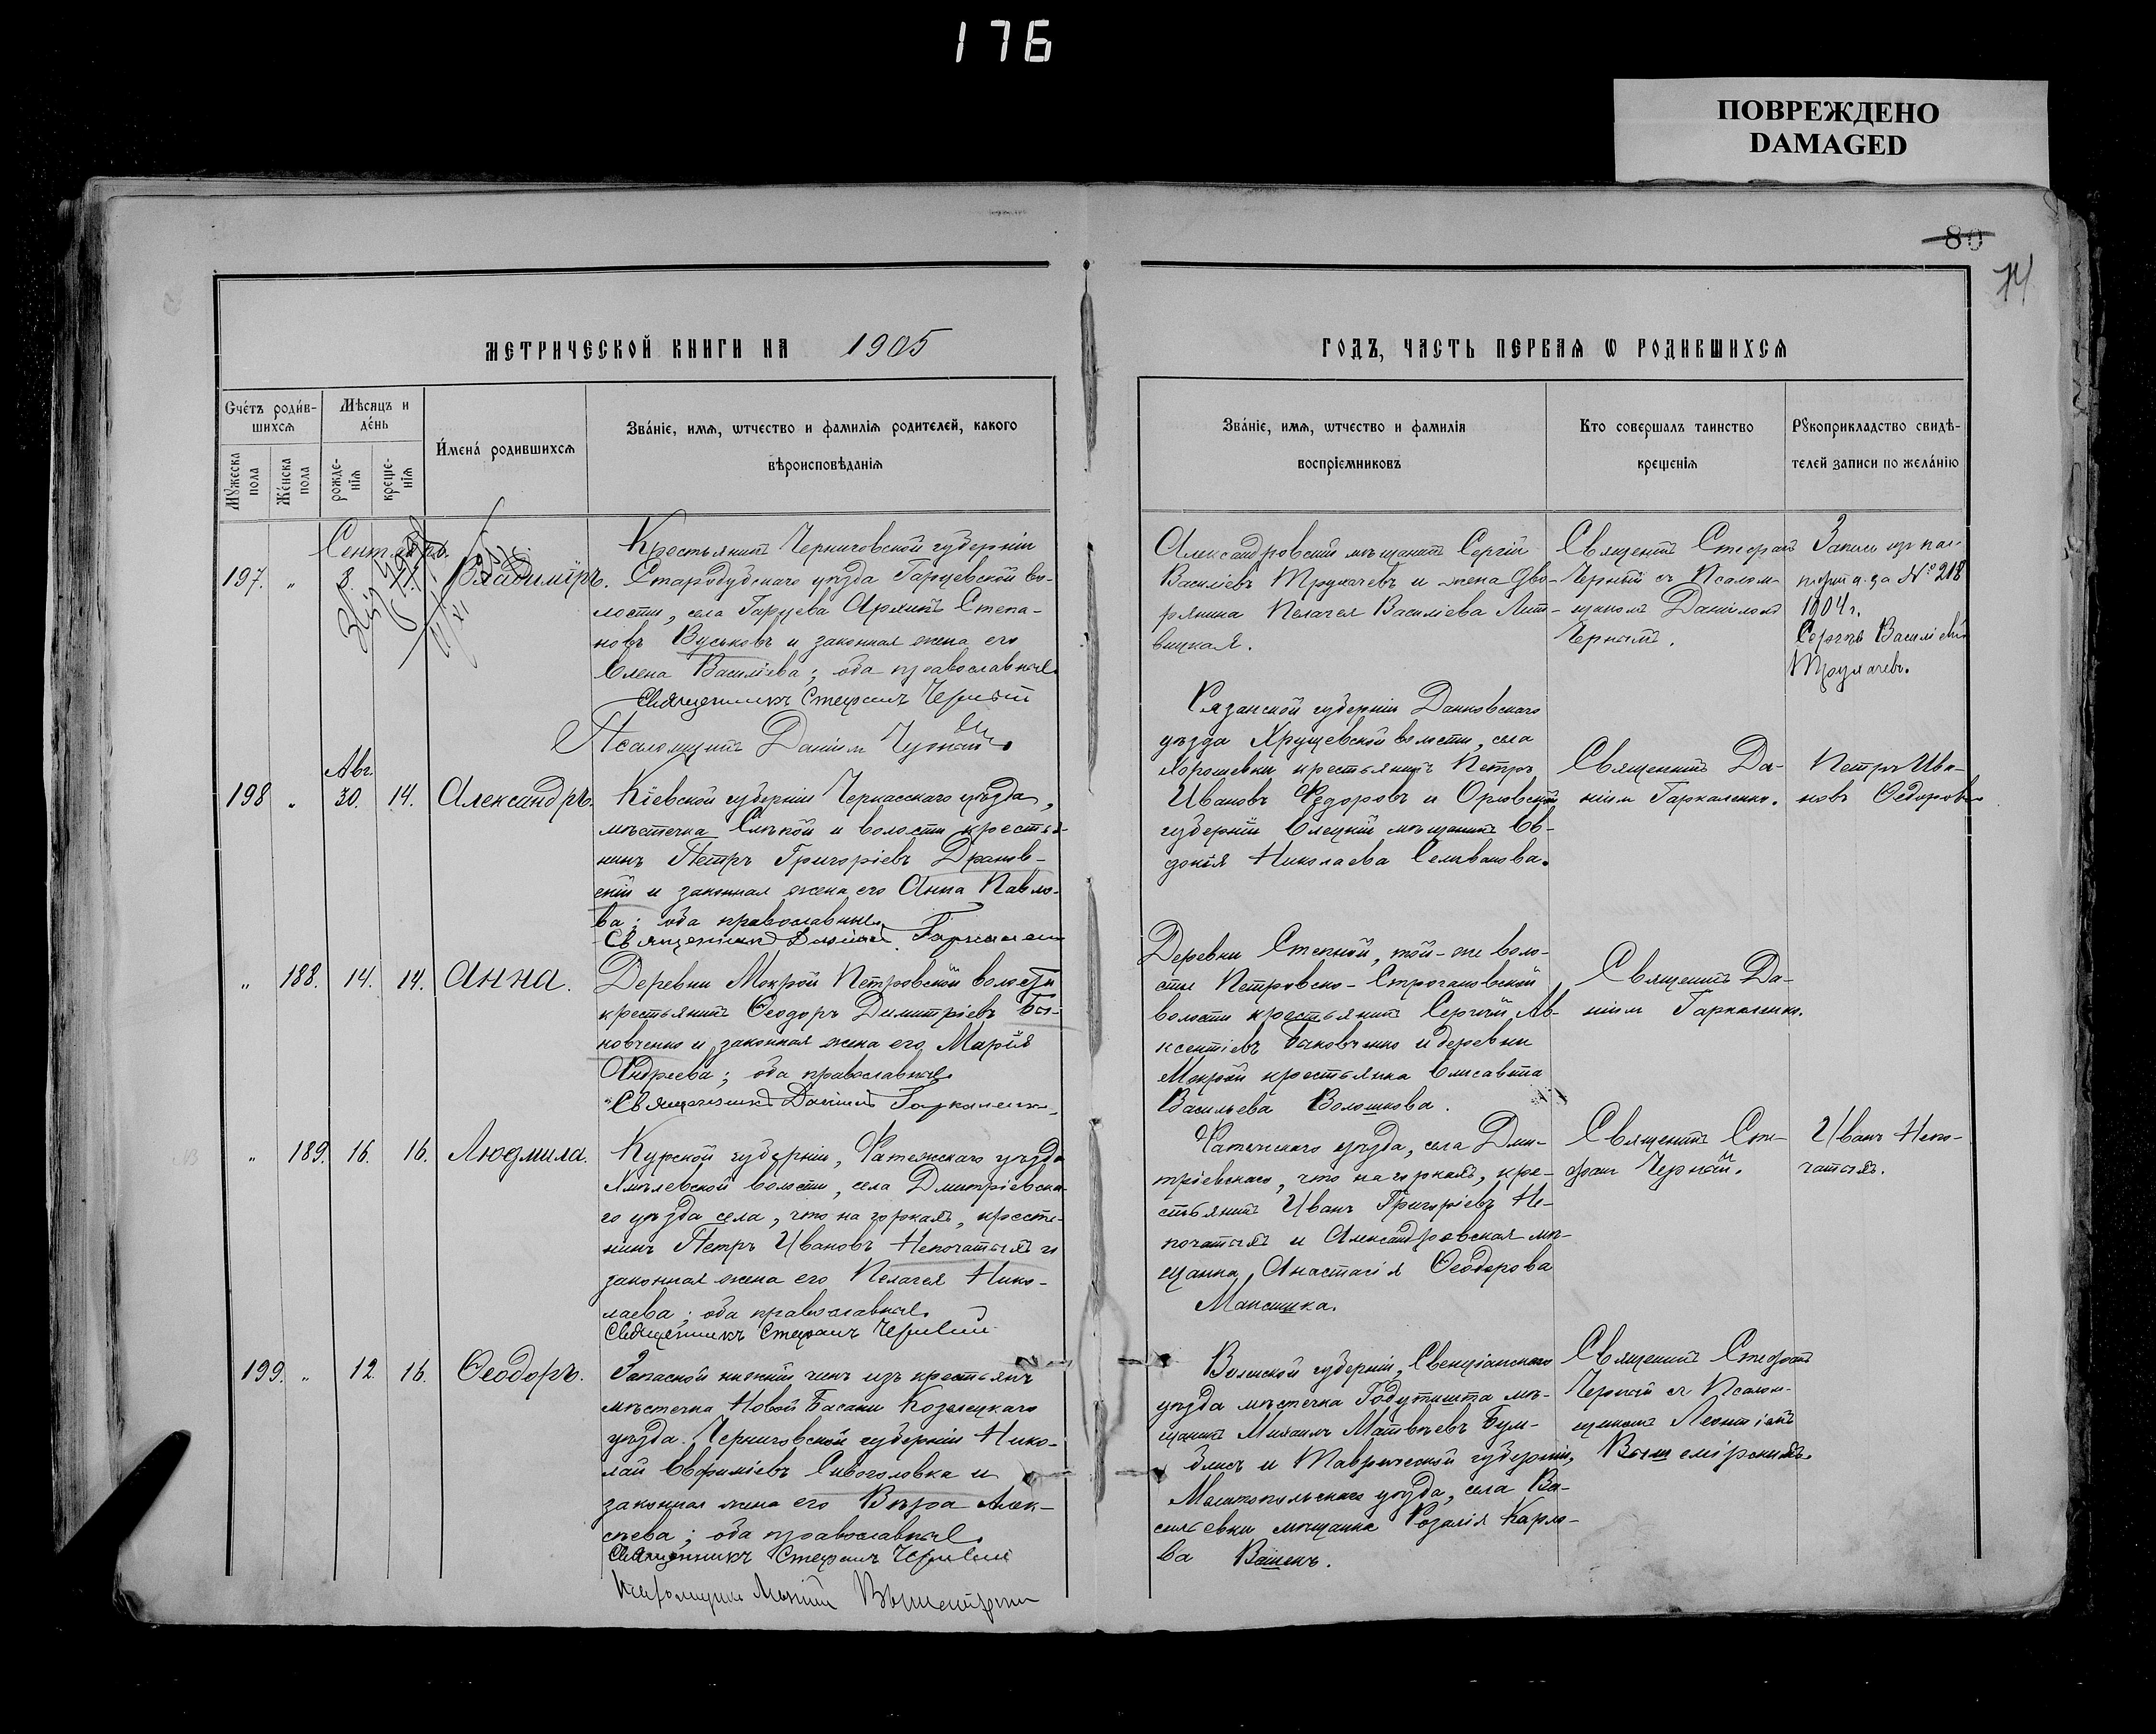 176
ПОВРЕЖДЕНО
DAMAGED
80
74
МЕТРИЧЕСКОЙ КНИГИ НА 1905
ГОДЪ, ЧАСТЬ ПЕРВАЯ Ѡ РОДИВШИХСЯ
Счетъ родив-
шихся
Мꙋжеска пола
Женска пола
Мѣсяцъ и
день
рожде-
нія
креще-
нія
Имена родившихся
Званіе, имя, ѡтчество и фамилія родителей, какого
вѣроисповѣданія
Званіе, имя, ѡтчество и фамилія
воспріемниковъ
Кто совершалъ таинство
крещенія
Рꙋкоприкладство свидѣ-
телей записи по желанію
Сентябрь.
197. " 3. Владиміръ.
Крестьянинъ Черниговской губерніи
Стародубскаго уѣзда Гарцевской во-
лости, села Гарцева Архипъ Степа-
новъ Вуськовъ и законная жена его
Елена Василіева; оба православные.
Священникъ Стефанъ Черный
Псаломщикъ Даніилъ Черный
Александровскій мѣщанинъ Сергій
Василіевъ Трукачевъ и жена дво-
рянина Пелагея Василіева Лит-
вицкая.
Священникъ Стефанъ
Черный съ Псалом-
щикомъ Даніиломъ
Чернымъ.
Запись изъ
за № 218
1904 г.
Сергѣй Василіевъ
Трукачевъ.
Авг.
198 " 30. 14. Александръ.
Кіевской губерніи Черкасскаго уѣзда,
мѣстечка Смѣлой и волости крестья-
нинъ Петръ Григоріевъ Дранов-
скій и законная жена его Анна Павло-
ва; оба православные.
Священникъ Даніилъ Гаркаленко
Рязанской губерніи Данковскаго
уѣзда Хрущевской волости, села
Хорошевки крестьянинъ Петръ
Ивановъ Ѳедоровъ и Орловской
губерніи Елецкій мѣщанинъ Ев-
докія Николаева Селиванова.
Священникъ Да-
ніилъ Гаркаленко.
Петръ Ива-
новъ Ѳедоровъ
" 188. 14. 14. Анна.
Деревни Мокрой Петровской волости
крестьянинъ Ѳеодоръ Димитріевъ Бы-
ковченко и законная жена его Марія
Андреева; оба православные.
Священникъ Даніилъ Гаркаленко
Деревни Степной, той-же воло-
сти Петровско-Строгановской
волости крестьянинъ Сергій Ав-
ксентіевъ Быковченко и деревни
Мокрой крестьянка Елисавета
Васильева Волошкова.
Священникъ Да-
ніилъ Гаркаленко.
" 189. 16. 16. Людмила.
Курской губерніи, Фатежскаго уѣзда
волости, села Дмитріевска-
го уѣзда села, что на горкахъ, крестья-
нинъ Петръ Ивановъ Непочатыхъ и
законная жена его Пелагея Нико-
лаева; оба православные.
Священникъ Стефанъ Черный
Фатежскаго уѣзда, села Дми-
тріевскаго, что на горкахъ, кре-
стьянинъ Иванъ Григоріевъ Не-
початыхъ и Александровская мѣ-
щанка Анастасія Ѳеодорова
Максишка.
Священникъ Сте-
фанъ Черный.
Иванъ Непо-
чатыхъ.
199. " 12. 16. Ѳеодоръ.
Запасной нижній чинъ изъ крестьянъ
мѣстечка Новой Басани Козелецкаго
уѣзда Черниговской губерніи Нико-
лай Евфиміевъ Сивоголовка и
законная жена его Вѣра Алек-
сѣева; оба православные.
Священникъ Стефанъ Черный
Виленской губерніи, Свенціанскаго
уѣзда мѣстечка Годутишта мѣ-
щанинъ Михаилъ Матвѣевъ Бум-
блисъ и Таврической губерніи,
Мелитопольскаго уѣзда, села Ва-
сильевки мѣщанка Розалія Карло-
ва Вашекъ.
Священникъ Стефанъ
Черный съ Псалом-
щикомъ Леонтіемъ